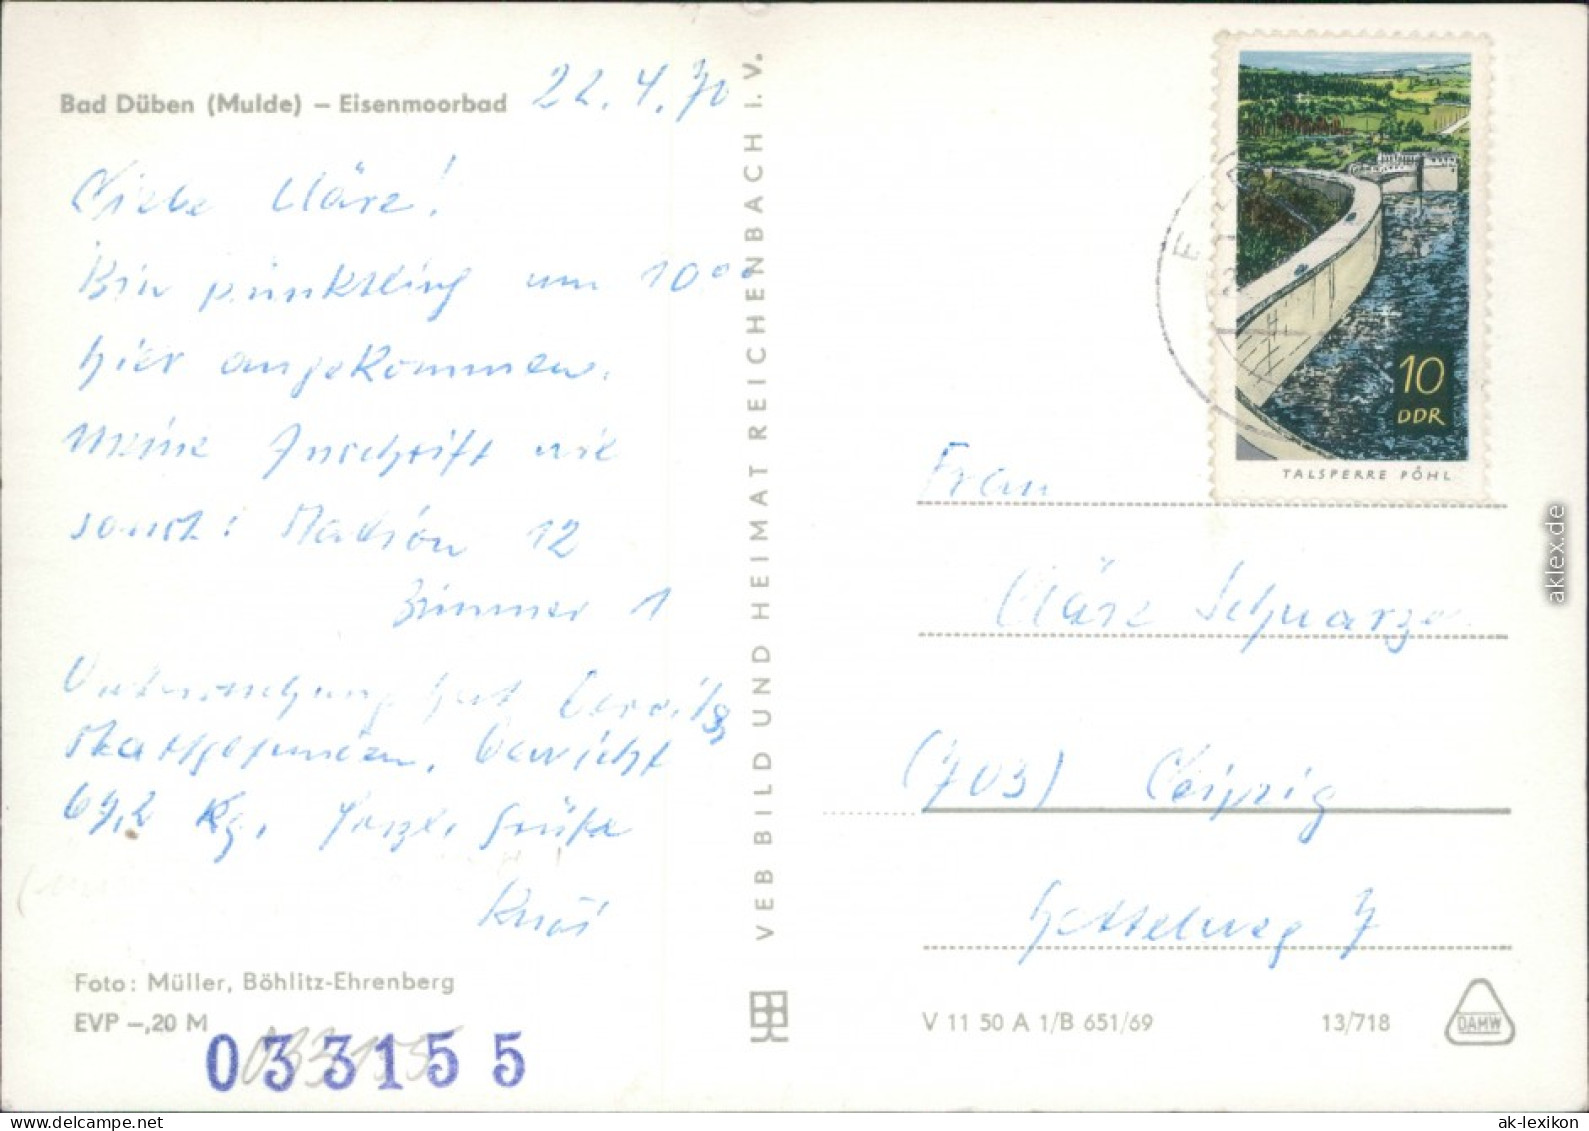 Bad Düben (Mulde) – Eisenmoorbad
22.4.70
Liebe Kläre!
Bin pünktlich um 10⁰⁰
hier angekommen.
Meine Anschrift wie
sonst: Station 12
Zimmer 1
Untersuchung hat bereits
stattgefunden. Gewicht
69,2 Kg. Herzl. Grüße
Foto: Müller, Böhlitz-Ehrenberg
EVP –,20 M
033155
033155
VEB BILD UND HEIMAT REICHENBACH I. V.
10
DDR
TALSPERRE PÖHL
Frau
Kläre Schwarze
(703) Leipzig
7
V 11 50 A 1/B 651/69
13/718
DAMW
aklex.de
ak-lexikon